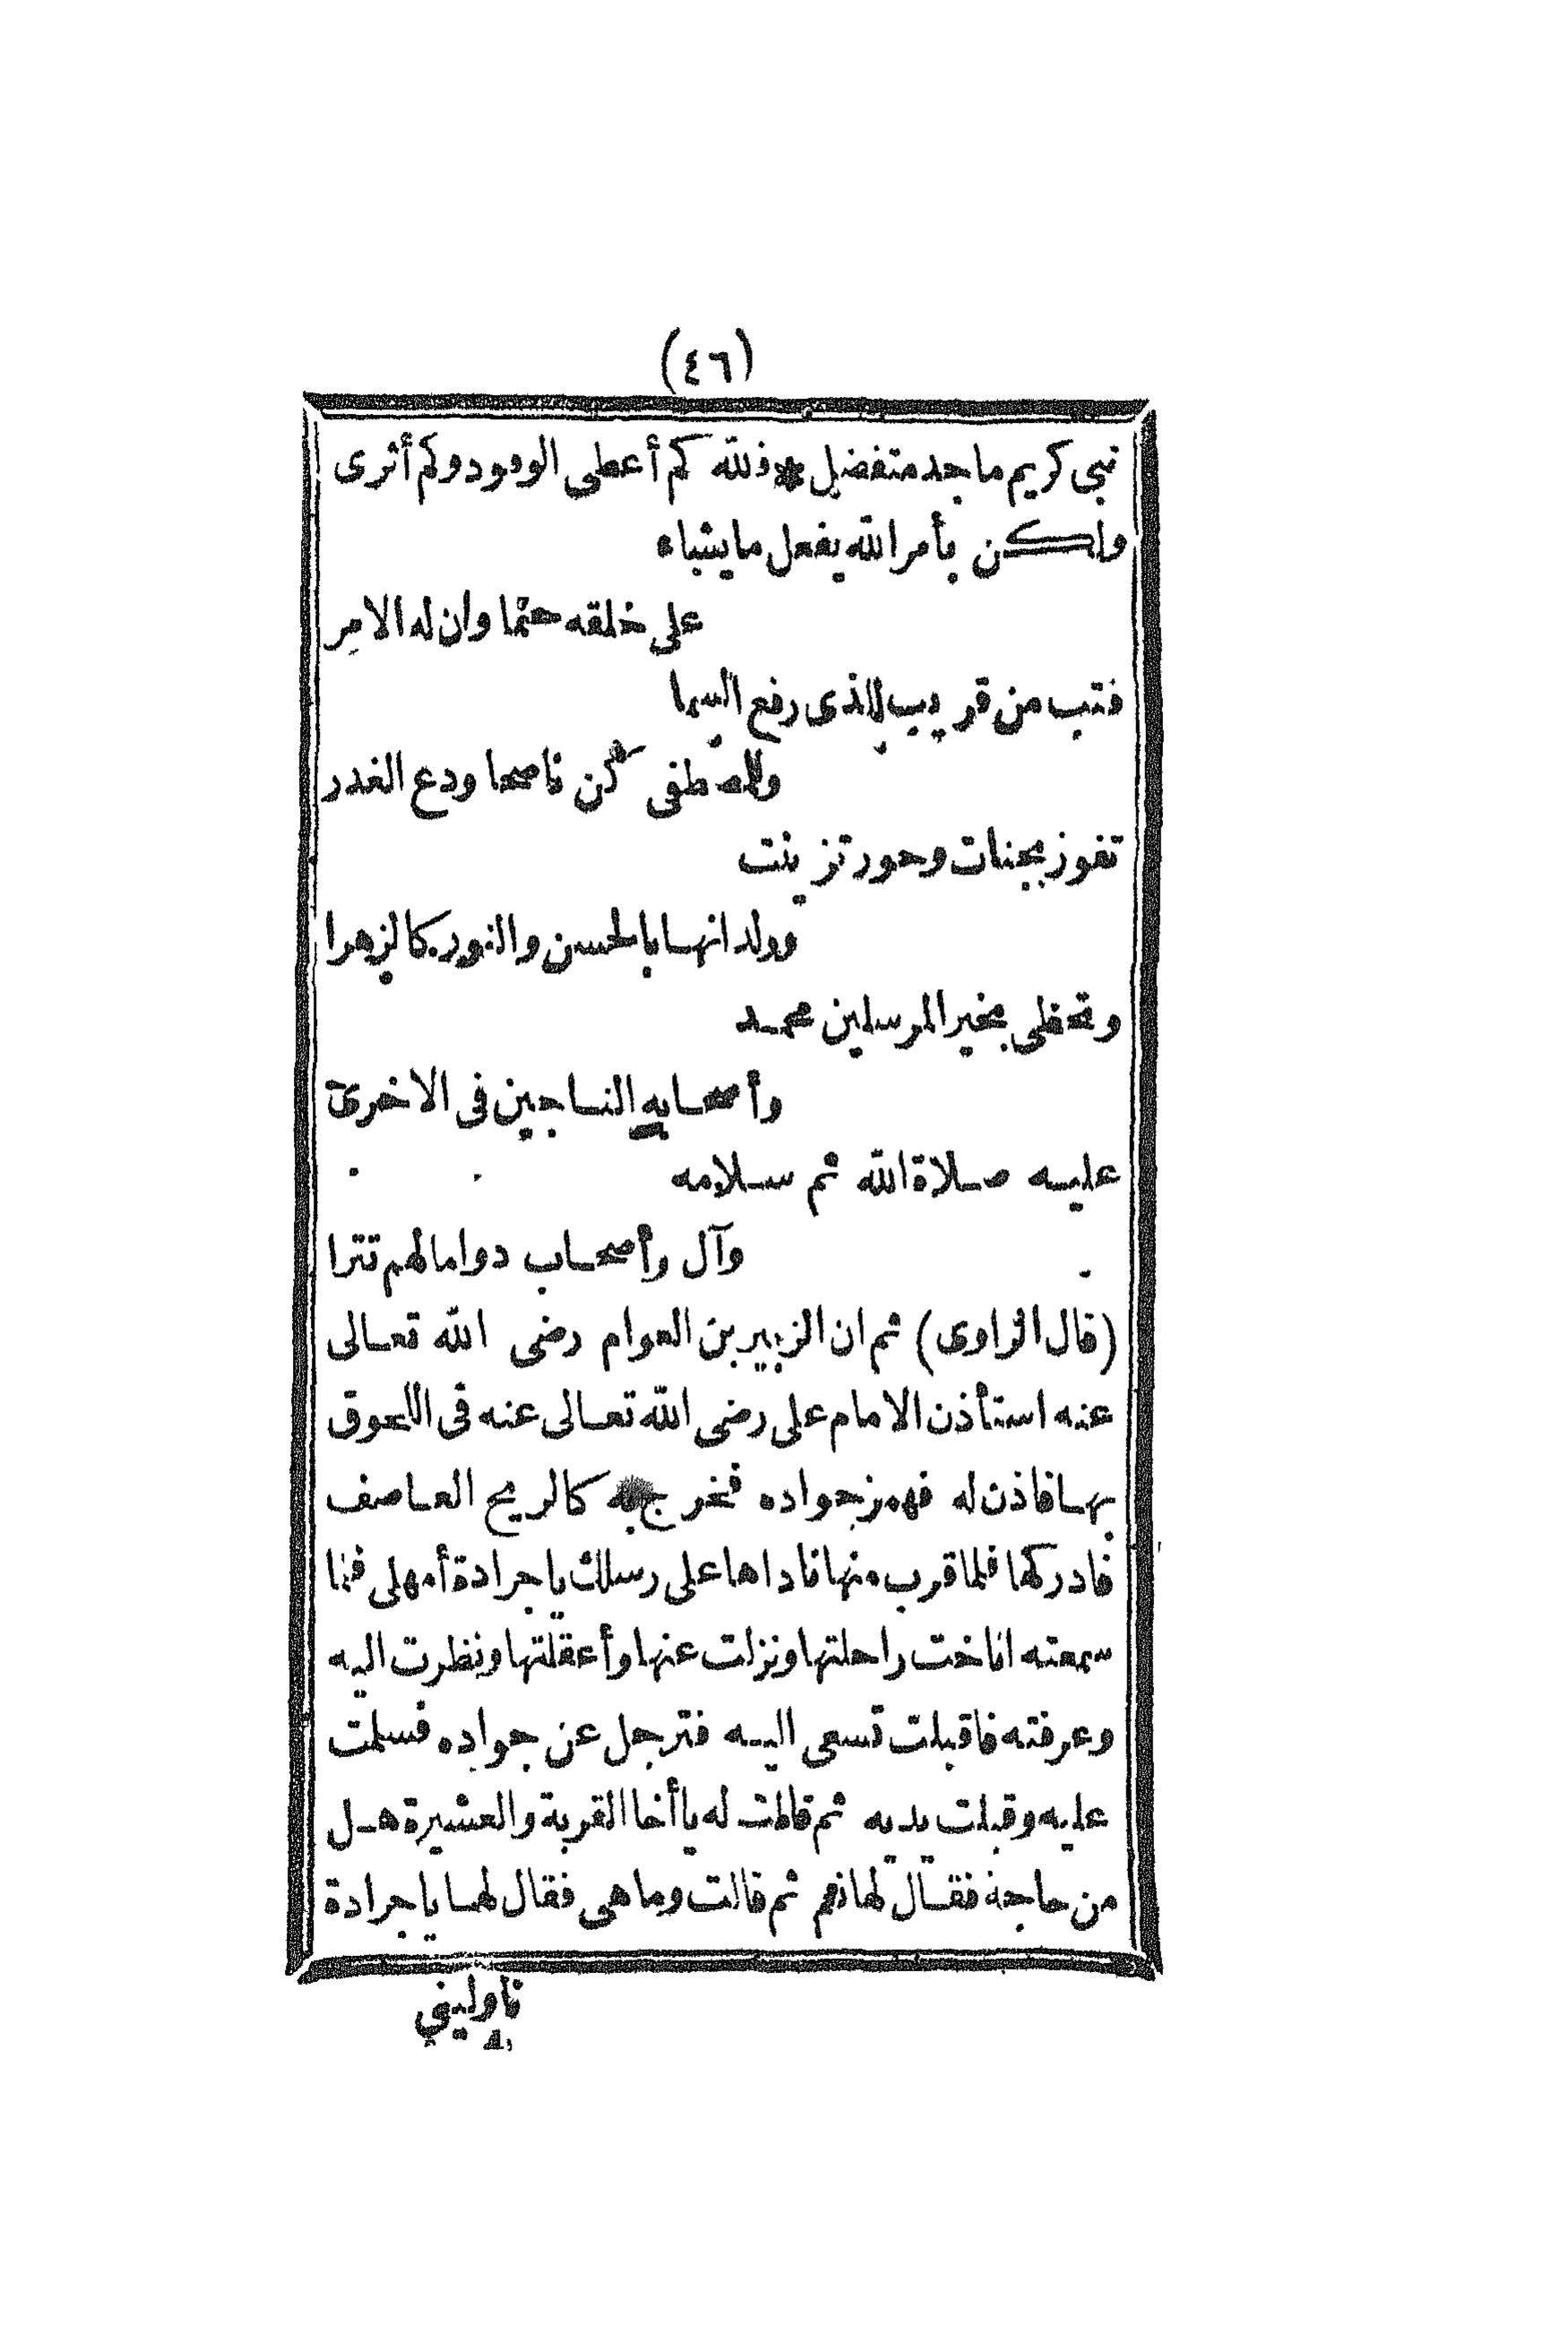 (٤٦)
نبى كريم ماجد متفضل * فلله كم أعطى الوفود وكم أثرى
ولكن بأمر الله يفعل ما يشاء
على خلقه حتما وان له الامر
فتب من قريب للذى رفع السما
وللمصطفى كن ناصحا ودع الغدر
تفوز بجنات وحور تزينت
وولدانها بالحسن والنور كالزهرا
وتحظى بخير المرسلين محمد
وأصحابه الناجين فى الاخرى
عليه صلاة الله ثم سلامه
وآل وأصحاب دواما لهم تترا
(قال الراوى) ثم ان الزبير بن العوام رضى الله تعالى
عنه استأذن الامام على رضى الله تعالى عنه فى اللحوق
بها فاذن له فهمز جواده فخرج به كالريح العاصف
فادركها فلما قرب منها ناداها على رسلك يا جرادة أمهلى فلما
سمعته اناخت راحلتها ونزلت عنها وأعقلتها ونظرت اليه
وعرفته فاقبلت تسعى اليه فترجل عن جواده فسلمت
عليه وقبلت يديه ثم قالت له يا أخا القربة والعشيرة هل
من حاجة فقال لها نعم ثم قالت وما هى فقال لها يا جرادة
ناولينى